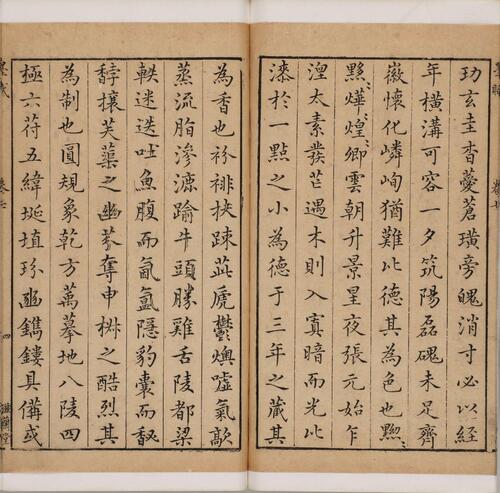 玏玄圭杳藑蒼璜旁魄消寸必以經
年横溝可容一夕筑陽磊磈未足齊
徽懷化嶙峋猶難比德其為色也黝
黝燁煌卿雲朝升景星夜張元始乍
湼太素發芒遇木則入寘暗而光比
漆於一點之小為德于三年之蔵其
為香也衯裶扶疎茈虒鬱燠噓氣歊
蒸流脂滲漉踰牛頭勝雞舌陵都梁
軼迷迭吐魚腹而氤氲隱豹囊而
馞攘芙蕖之幽奪申椒之酷烈其
為制也圓規象乾方萬摹地八陵四
極六符五緯埏埴玢豳鐫鏤具備或
卷七
四